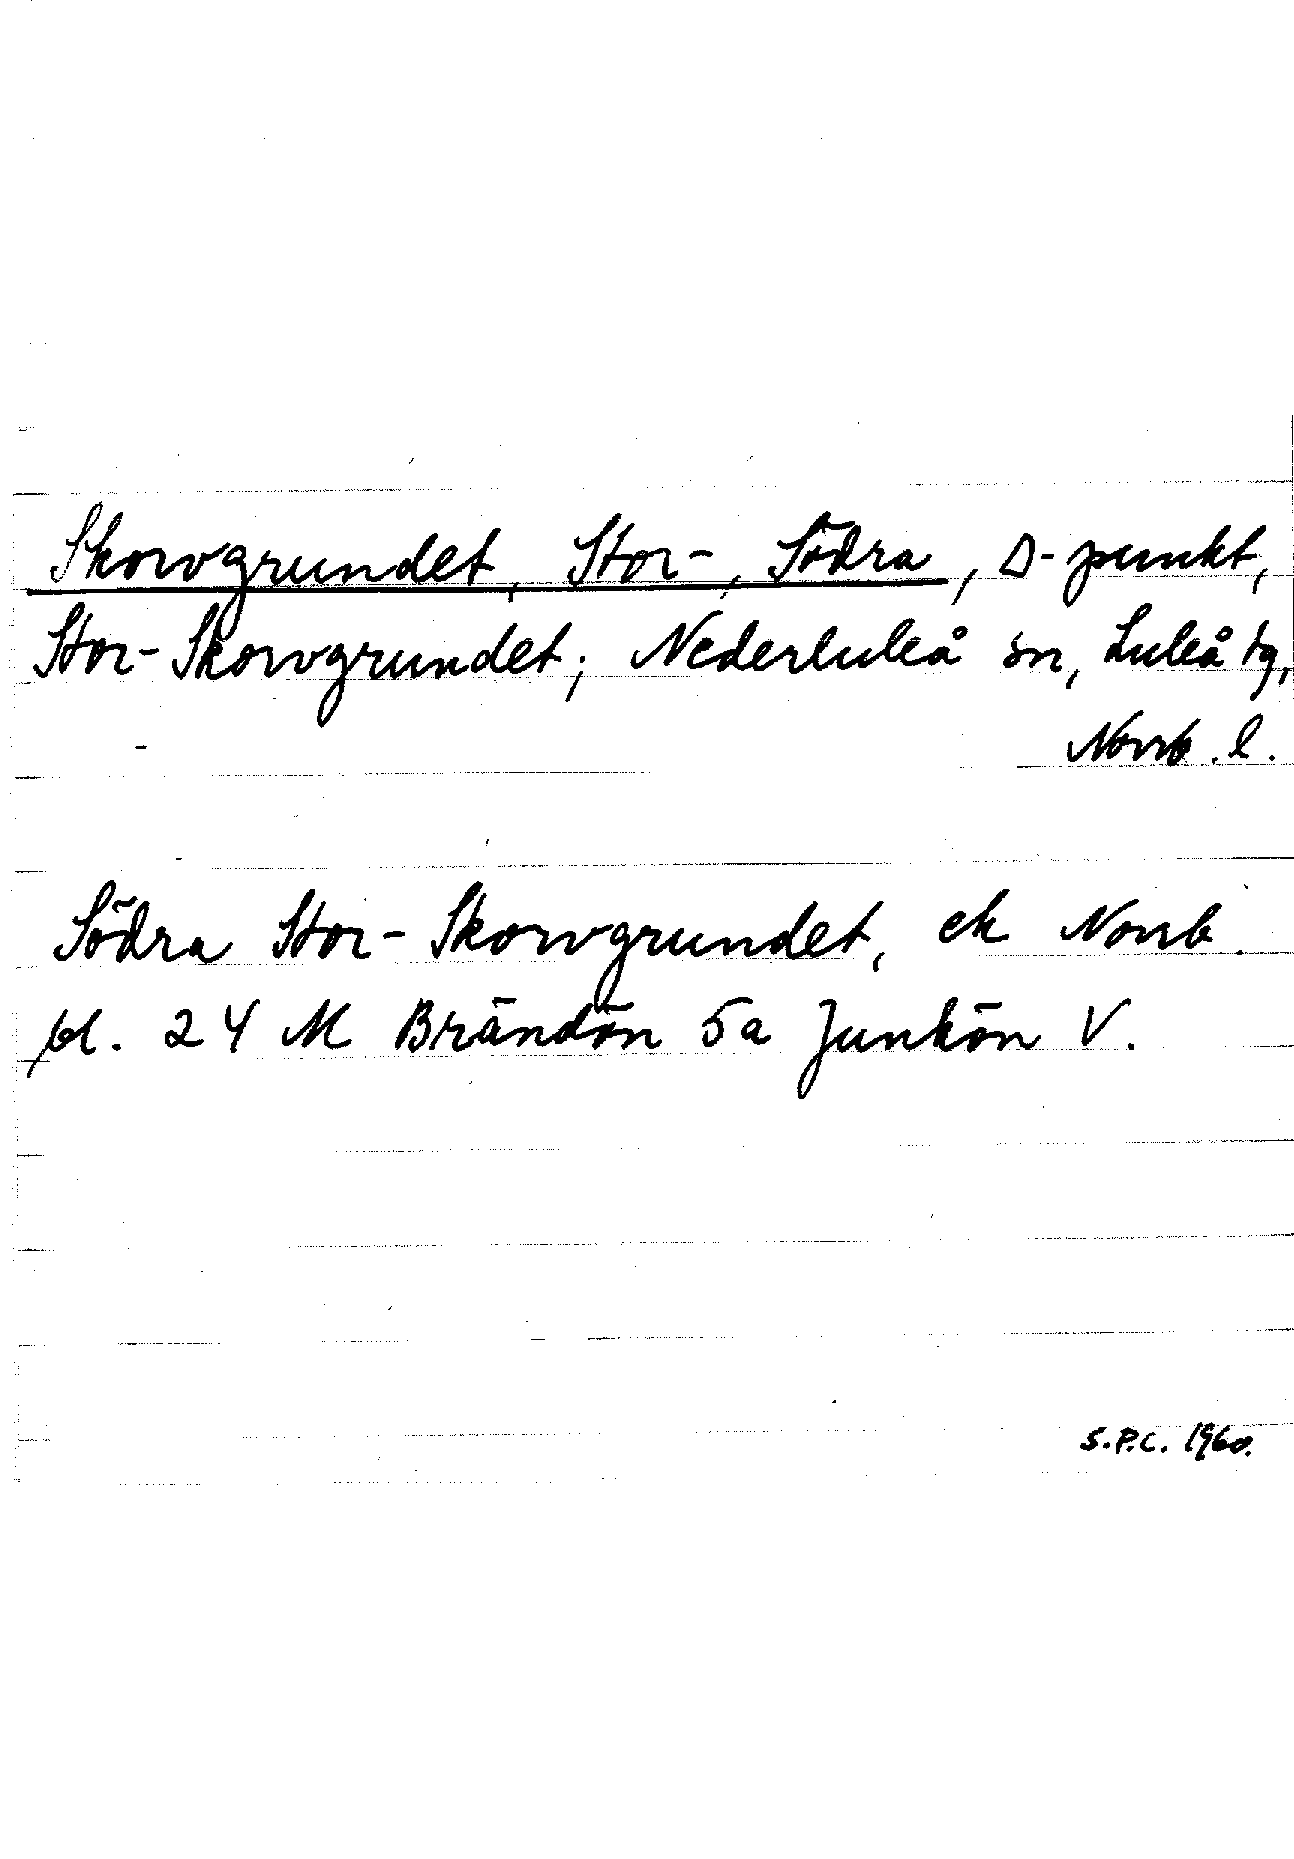 Skorvgrundet, Stor-, Södra, Δ-punkt,
Stor-Skorvgrundet; Nederluleå sn, Luleå tg,
Norrb. l.
Södra Stor-Skorvgrundet, ek Norrb.
bl. 24 M Brändön 5a Junkön V.
S.P.C. 1960.